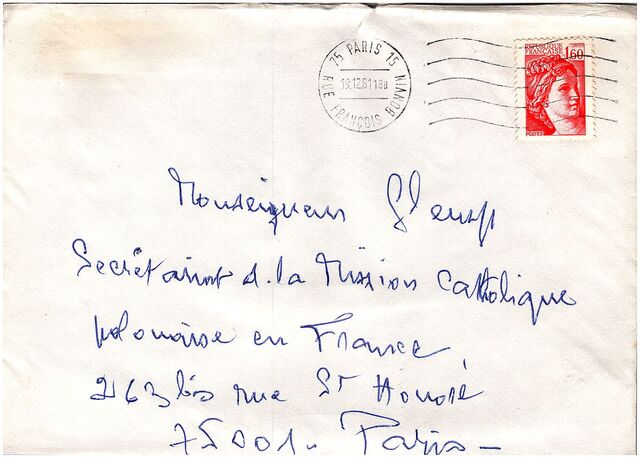 75 PARIS 15
19.12.81 18H
RUE FRANÇOIS BONVIN
REPUBLIQUE
FRANÇAISE
1,60
POSTES
Monseigneur
Secrétariat d. la Mission Catholique
polonaise en France
263 bis rue St Honoré
75001. Paris -